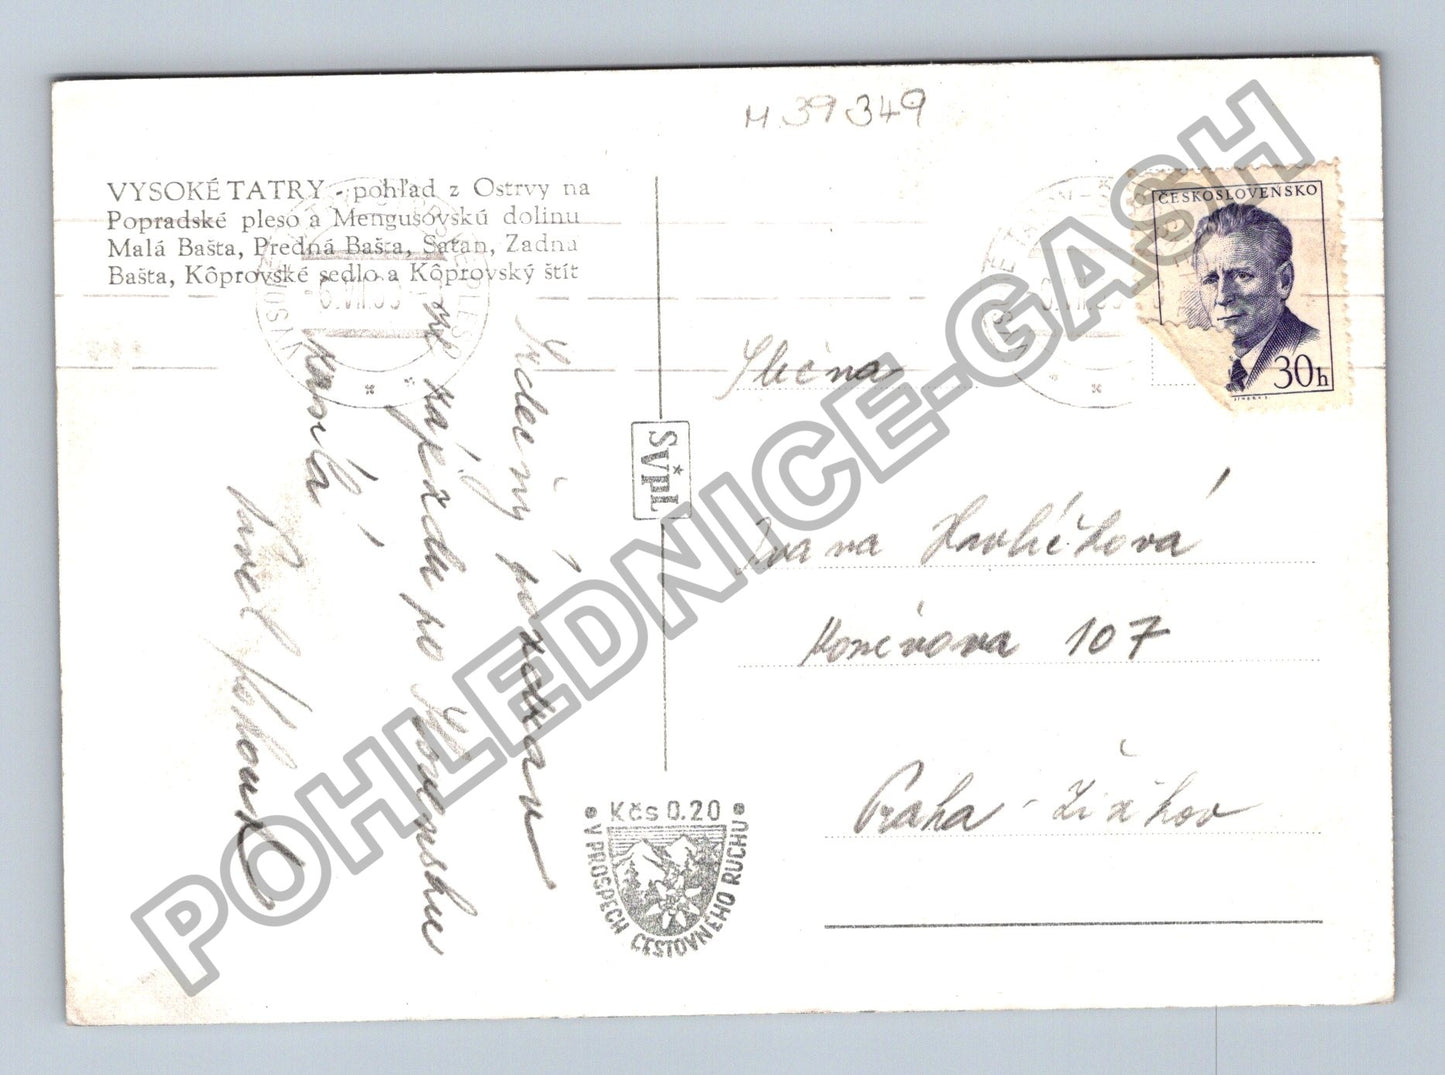 M 39349
VYSOKÉ TATRY - pohľad z Ostrvy na
Popradské pleso a Mengusovskú dolinu
Malá Bašta, Predná Bašta, Satan, Zadná
Bašta, Kôprovské sedlo a Kôprovský štít
ČESKOSLOVENSKO
30h
Srdečný pozdrav
ze zájezdu po Slovensku
posílá
Pavel
SVPL
Slečna
Ivana Havlíčková
Koněvova 107
Praha - Žižkov
Kčs 0.20
V PROSPECH CESTOVNÉHO RUCHU
POHLEDNICE-GASH